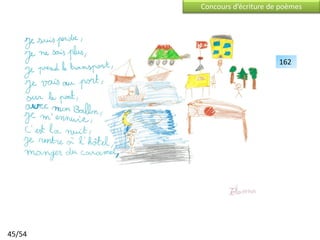 Concours d'écriture de poèmes
je suis perdu,
je ne sais plus,
je prend le transport,
je vais au port,
sur le pont,
avec mon Ballon,
je m'ennuie,
C'est la nuit,
je rentre à l'hôtel,
manger du caramel,
162
45/54